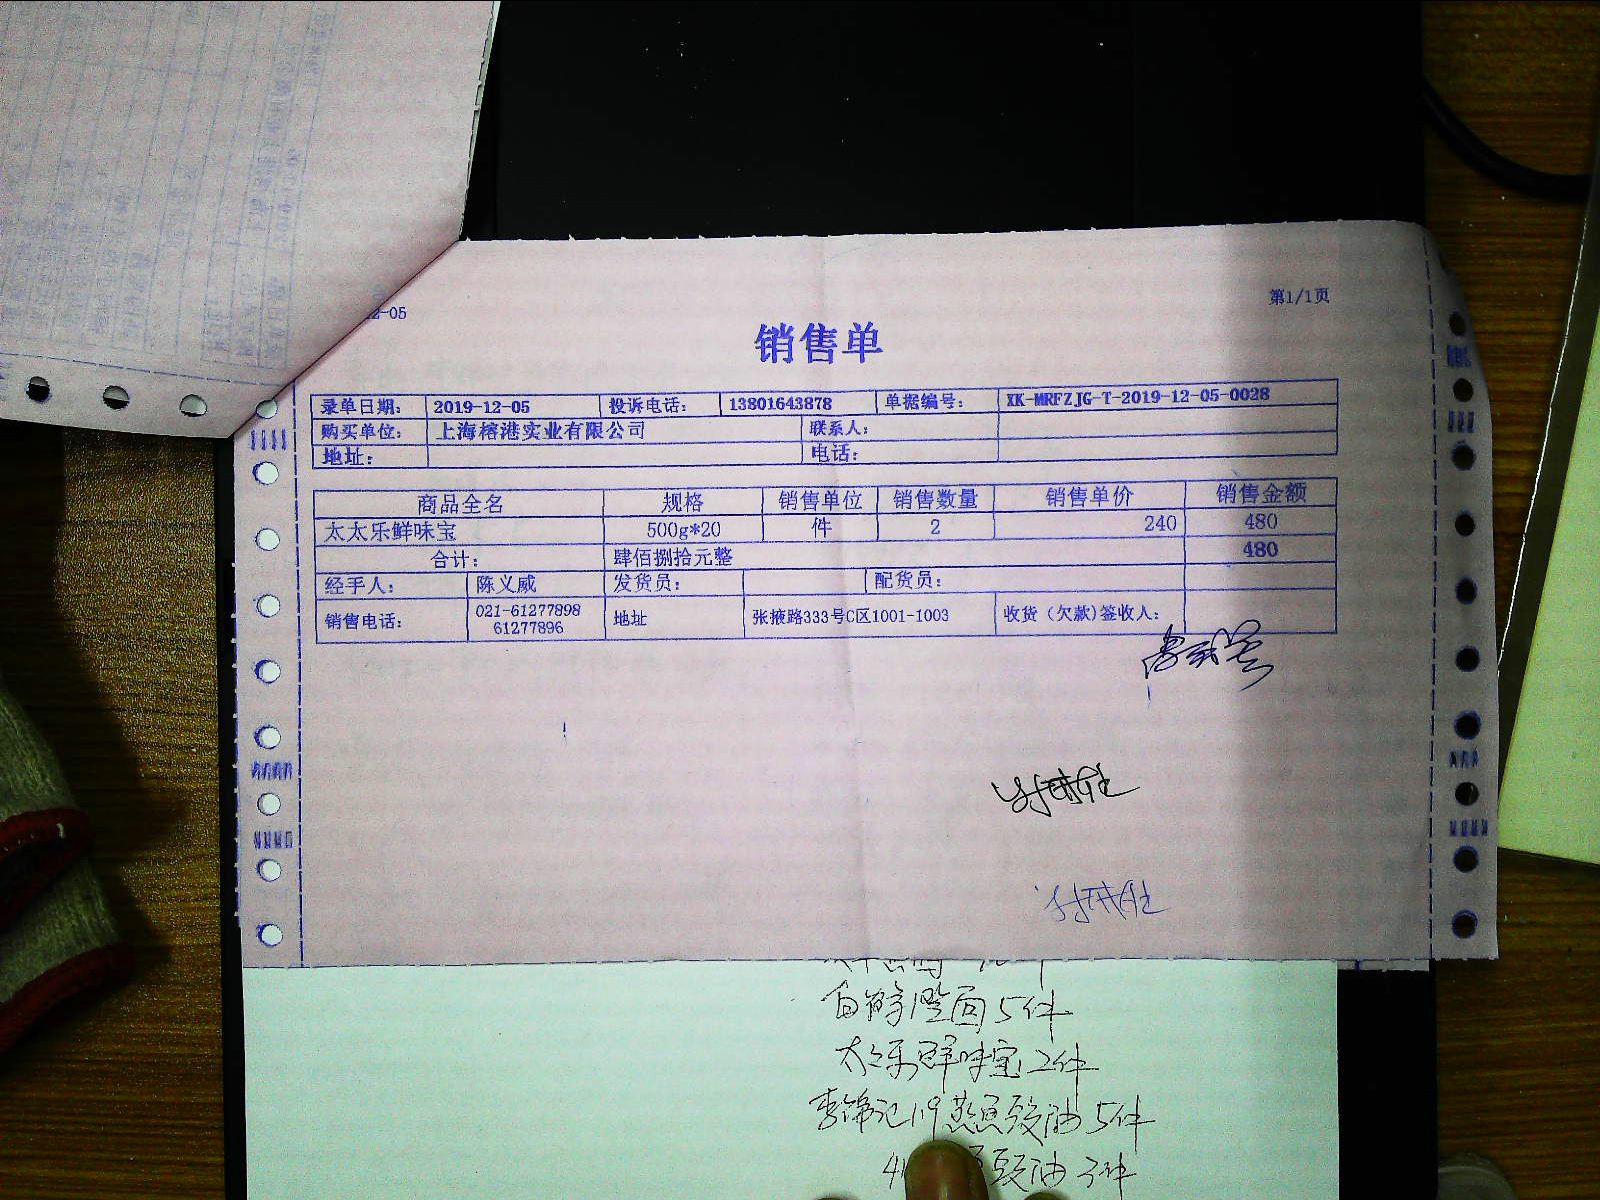 2-05
第1/1页
销售单
录单日期： 2019-12-05 投诉电话： 13801643878 单据编号： XK-MRFZJG-T-2019-12-05-0028
购买单位： 上海榕港实业有限公司 联系人：
地址： 电话：
商品全名 规格 销售单位 销售数量 销售单价 销售金额
太太乐鲜味宝 500g*20 件 2 240 480
合计： 肆佰捌拾元整 480
经手人： 陈义威 发货员： 配货员：
销售电话： 021-61277898 地址 张掖路333号C区1001-1003 收货（欠款)签收人：
61277896
澄面5件
太太乐鲜味宝2件
李锦记1.9蒸鱼豉油5件
豉油3件